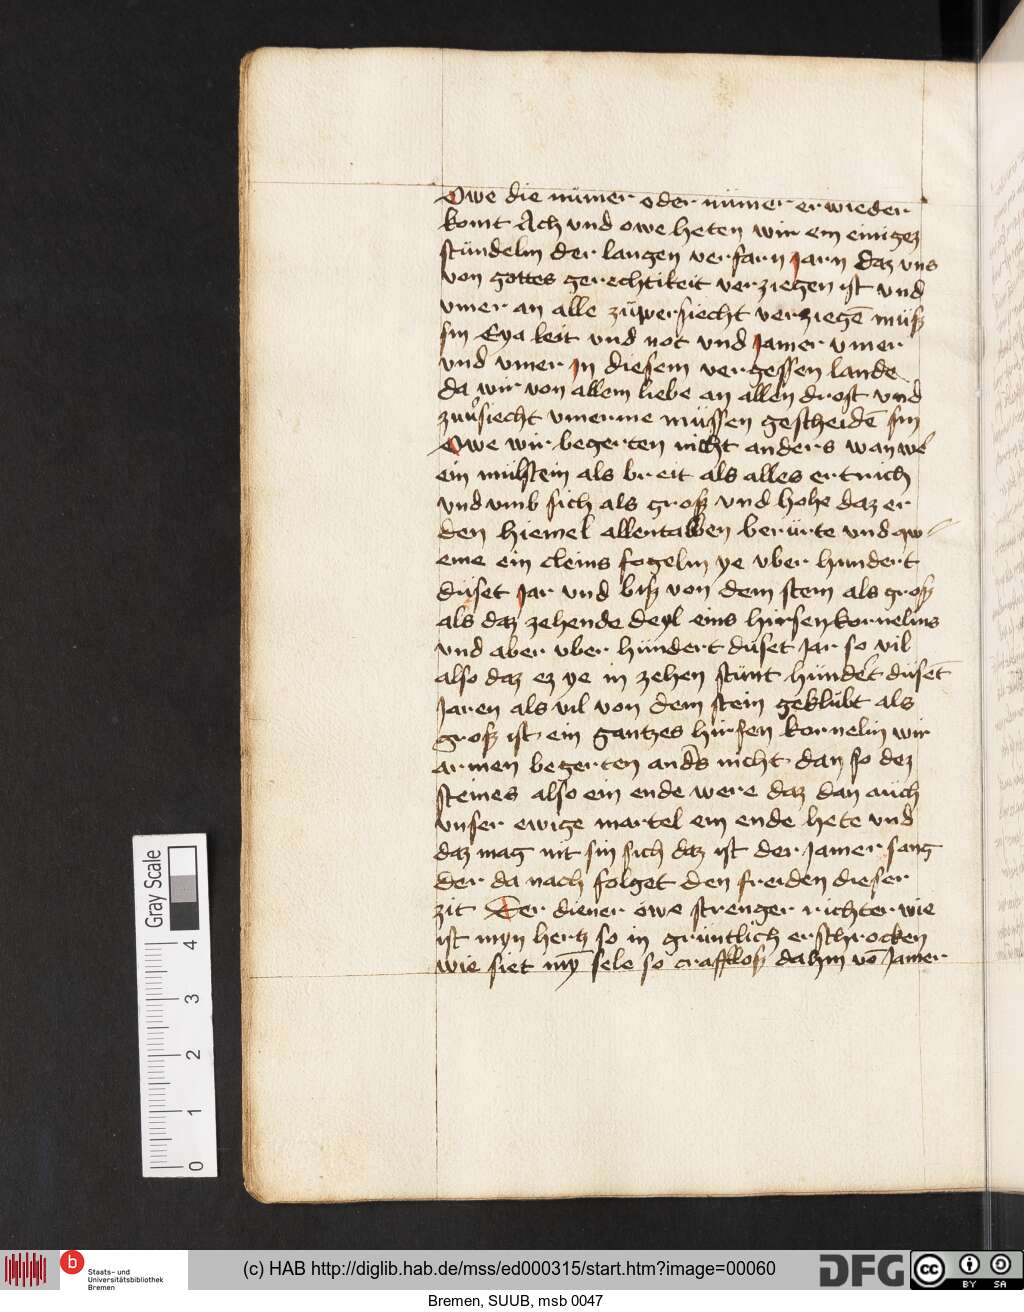 Owe die nümer oder nümer er wieder
komt Ach vnd owe heten wir ein einigez
stündelin der langen verfarn Jarn daz vns
von gottes gerechtikeit verziegen ist vnd
vmer an alle züversiecht verziegē müß
sin Eya leit vnd not vnd Jamer vmer
vnd vmer Jn diesem vergessen lande
da wir von allem liebe an allen drost vnd
zuͦsiecht vmerme müssen gescheidē sin
Owe wir begerten nicht anders wan we͛
ein mülstein als breit als alles ertrich
vnd vmb sich als groß vnd hohe daz er
den hiemel allentalben berürte vnd qw-
eme ein cleins fogelin ye vber hundert
düset Jar vnd biß von dem stein als groß
als daz zehende deyl eins hirsenkornelins
vnd aber vber hündert düset Jar so vil
also daz ez ye in zehen stünt hünde͛t düsēt
Jaren als vil von dem stein geklübt als
groß ist ein gantzes hirsen kornelin wir
armen begerten and͛s nicht dan so dez
steines also ein ende were daz dan auch
vnser ewige martel ein ende hete vnd
daz mag nit sin sich daz ist der Jamer sang
der da nach folget den freiden dieser
zit Der diener owe strenger richter wie
ist myn hertz so in grüntlich erschrocken
wie siet mȳ sele so crafftloß dahin vō Jamer
Gray Scale
4
3
2
1
0
b
Staats- und
Universitätsbibliothek
Bremen
(c) HAB http://diglib.hab.de/mss/ed000315/start.htm?image=00060
DFG
cc
BY SA
Bremen, SUUB, msb 0047